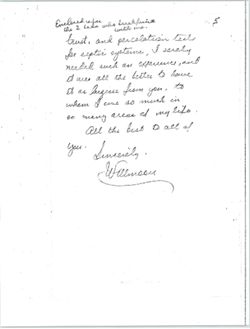 5
the 2 who breakfasted
with me.
trust, and percolation tests
for septic systems, I sorely
needed such an experience, and
it was all the better to have
it as largess from you, to
whom I owe so much in
so many areas of my life.
All the best to all of
you.
Sincerely,